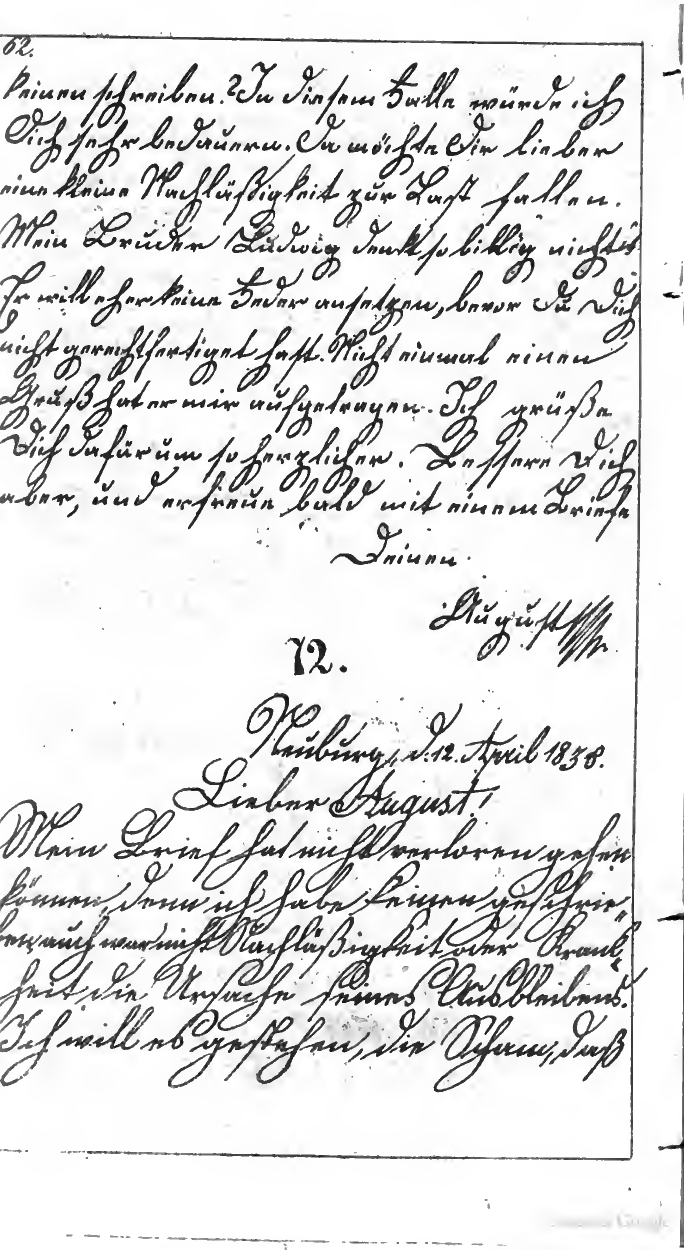 62.
keinen schreiben? In diesem Falle würde ich
Dich sehr bedauern. Da möchte Dir lieber
eine kleine Nachläßigkeit zur Last fallen.
Mein Bruder Ludwig denkt so billig nicht.
Er will eher keine Feder ansetzen, bevor Du Dich
nicht gerechtfertiget hast. Nicht einmal einen
Gruß hat er mir aufgetragen. Ich grüße
Dich dafür um so herzlicher. Bessere Dich
aber, und erfreue bald mit einem Briefe
Deinen
August
12.
Neuburg, d. 12. April 1838.
Lieber August!
Mein Brief hat nicht verloren gehen
können, denn ich habe keinen geschrie-
ben, auch war nicht Nachläßigkeit oder Krank-
heit die Ursache seines Ausbleibens.
Ich will es gestehen, die Scham, daß